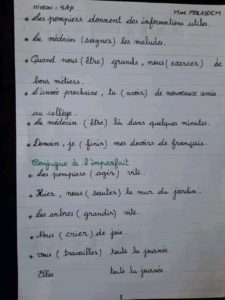 niveau : 4AP Mme MALAOEM
* Les pompiers donnent des informations utiles.
* Le médecin (soigner) les malades.
* Quand nous (être) grands, nous (exercer) de
bons métiers.
* L'année prochaine, tu (avoir) de nouveaux amis
au collège.
* Le médecin (être) là dans quelques minutes.
* Demain, je (finir) mes devoirs de français.
Conjugue à l'imparfait
* Les pompiers (agir) vite.
* Hier, nous (sauter) le mur du jardin.
* Les arbres (grandir) vite.
* Nous (crier) de joie.
* Vous (travailler) toute la journée.
Elles toute la journée